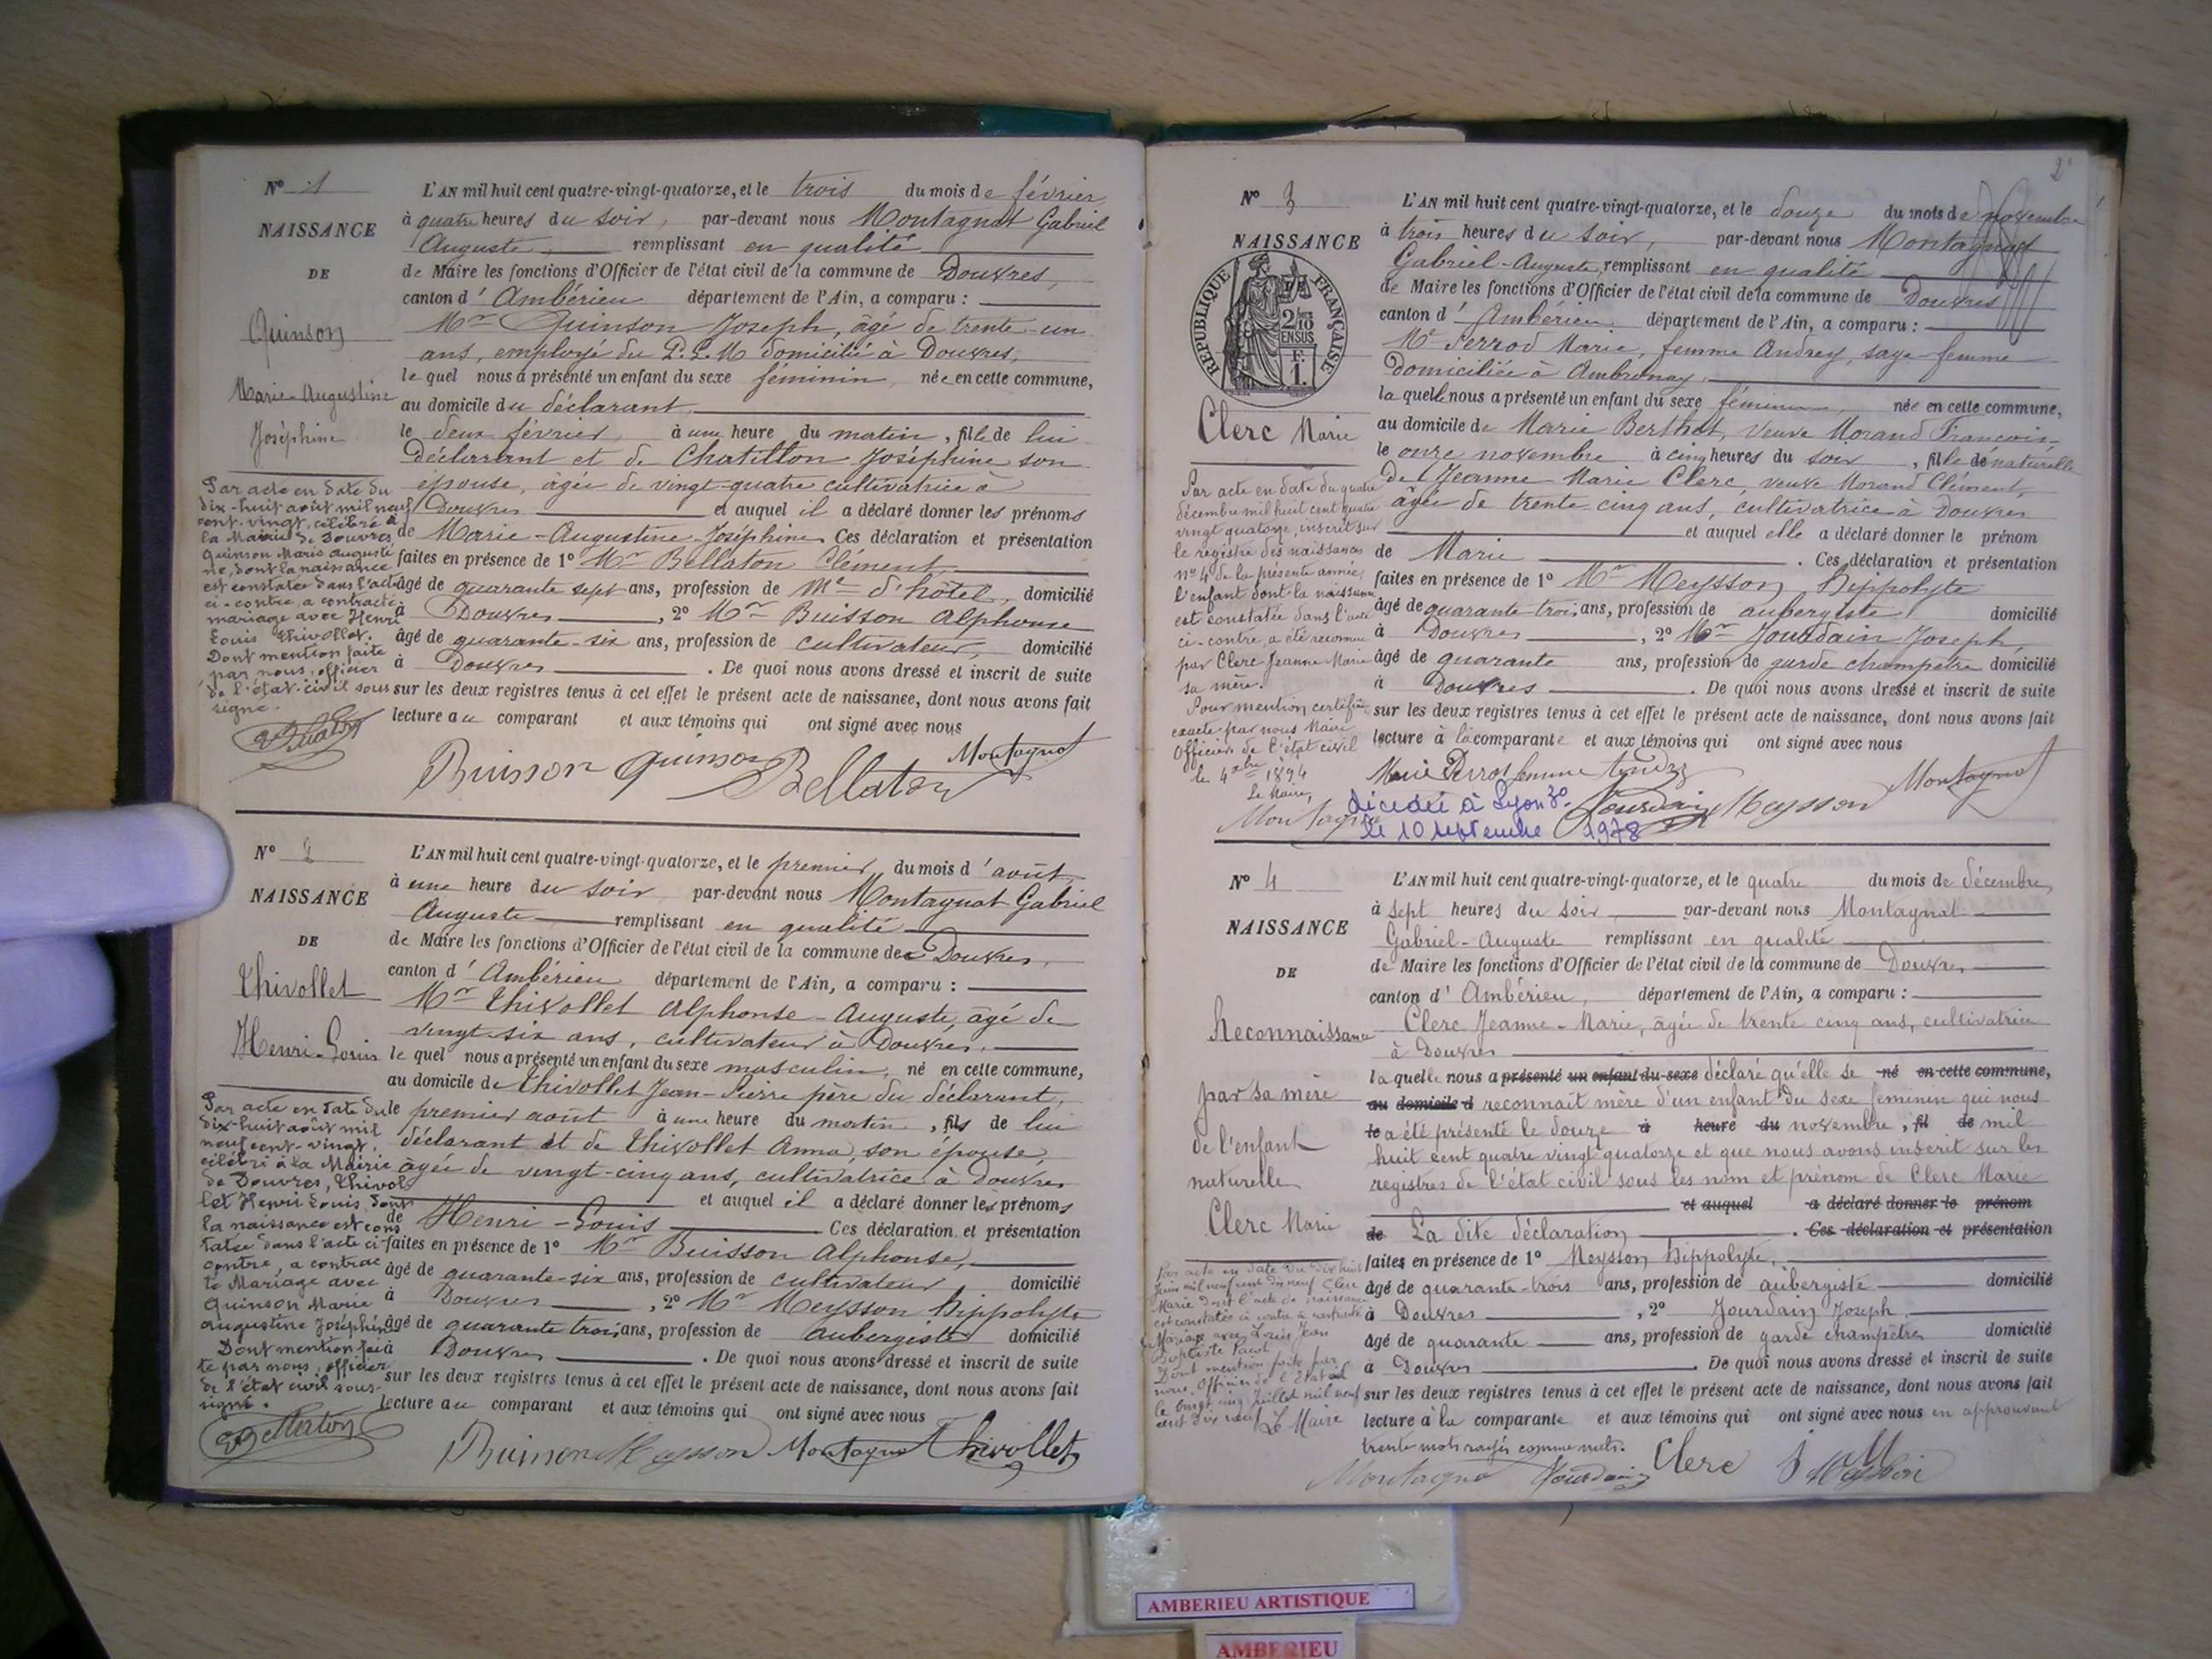 N° 1
NAISSANCE
DE
Quinson
Marie-Augustine
Joséphine
Par acte en date du
dix-huit août mil neuf
cent-vingt, célébré à
la Mairie de Douvres
Quinson Marie Augusti
ne, dont la naissance
est constatée dans l'acte
ci-contre a contracté
mariage avec Henri
Louis Thivollet.
Dont mention faite
par nous, officier
de l'état-civil sous
signé.
L'AN mil huit cent quatre-vingt-quatorze, et le trois du mois de février
à quatre heures du soir, par-devant nous Montagnat Gabriel
Auguste, remplissant en qualité
de Maire les fonctions d'Officier de l'état civil de la commune de Douvres,
canton d'Ambérieu département de l'Ain, a comparu :
Mr Quinson Joseph, âgé de trente-un
ans, employé du P.L.M domicilié à Douvres,
lequel nous a présenté un enfant du sexe féminin, née en cette commune,
au domicile du déclarant,
le deux février, à une heure du matin, fille de lui
déclarant et de Chatillon Joséphine son
épouse, âgée de vingt-quatre cultivatrice à
Douvres et auquel il a déclaré donner les prénoms
de Marie-Augustine-Joséphine. Ces déclaration et présentation
faites en présence de 1° Mr Bellaton Clément,
âgé de quarante sept ans, profession de Me d'hôtel, domicilié
à Douvres, 2° Mr Buisson Alphonse
âgé de quarante-six ans, profession de cultivateur, domicilié
à Douvres. De quoi nous avons dressé et inscrit de suite
sur les deux registres tenus à cet effet le présent acte de naissance, dont nous avons fait
lecture au comparant et aux témoins qui ont signé avec nous
Buisson Quinson Bellaton Montagnat
N° 2
NAISSANCE
DE
Thivollet
Henri-Louis
Par acte en date du
dix-huit août mil
neuf cent-vingt,
célébré à la Mairie
de Douvres, Thivol
let Henri Louis, dont
la naissance est cons
tatée dans l'acte ci-
contre, a contrac
té Mariage avec
Quinson Marie
Augustine Joséphine
Dont mention fai
te par nous, officier
de l'état civil sous-
signé.
L'AN mil huit cent quatre-vingt-quatorze, et le premier du mois d'août,
à une heure du soir par-devant nous Montagnat Gabriel
Auguste remplissant en qualité
de Maire les fonctions d'Officier de l'état civil de la commune de Douvres,
canton d'Ambérieu département de l'Ain, a comparu :
Mr Thivollet Alphonse-Auguste, âgé de
vingt-six ans, cultivateur à Douvres,
lequel nous a présenté un enfant du sexe masculin, né en cette commune,
au domicile de Thivollet Jean-Pierre père du déclarant,
le premier août à une heure du matin, fils de lui
déclarant et de Thivollet Anna, son épouse,
âgée de vingt-cinq ans, cultivatrice à Douvres
et auquel il a déclaré donner les prénoms
de Henri-Louis Ces déclaration et présentation
faites en présence de 1° Mr Buisson Alphonse,
âgé de quarante-six ans, profession de cultivateur domicilié
à Douvres, 2° Mr Meysson Hippolyte
âgé de quarante trois ans, profession de aubergiste domicilié
à Douvres. De quoi nous avons dressé et inscrit de suite
sur les deux registres tenus à cet effet le présent acte de naissance, dont nous avons fait
lecture au comparant et aux témoins qui ont signé avec nous
Buisson Meysson Montagnat Thivollet
2
N° 3
NAISSANCE
REPUBLIQUE FRANÇAISE
2/10 EN SUS
F. 1.
Clerc Marie
Par acte en date du quatre
décembre mil huit cent quatre
vingt quatorze, inscrit sur
le registre des naissances
n° 4 de la présente année,
l'enfant dont la naissance
est constatée dans l'acte
ci-contre, a été reconnue
par Clerc Jeanne Marie
sa mère.
Pour mention certifiée
exacte par nous Maire
Officier de l'état civil
le 4 Xbre 1894
Le Maire,
Montagnat
L'AN mil huit cent quatre-vingt-quatorze, et le douze du mois de novembre
à trois heures du soir, par-devant nous Montagnat
Gabriel-Auguste, remplissant en qualité
de Maire les fonctions d'Officier de l'état civil de la commune de Douvres
canton d'Ambérieu, département de l'Ain, a comparu :
Me Perrod Marie, femme Andrey, sage-femme
domiciliée à Ambronay,
laquelle nous a présenté un enfant du sexe féminin, née en cette commune,
au domicile de Marie Berthet, veuve Morand François
le onze novembre à cinq heures du soir, fille dénaturelle
de Jeanne Marie Clerc, veuve Morand Clément,
âgée de trente cinq ans, cultivatrice à Douvres
et auquel elle a déclaré donner le prénom
de Marie. Ces déclaration et présentation
faites en présence de 1° Mr Meysson Hippolyte
âgé de quarante-trois ans, profession de aubergiste domicilié
à Douvres, 2° Mr Jourdain Joseph
âgé de quarante ans, profession de garde champêtre domicilié
à Douvres. De quoi nous avons dressé et inscrit de suite
sur les deux registres tenus à cet effet le présent acte de naissance, dont nous avons fait
lecture à la comparante et aux témoins qui ont signé avec nous
Marie Perrod femme Jourdain Meysson Montagnat
décédée à Lyon 3e
le 10 septembre 1978
N° 4
NAISSANCE
DE
Reconnaissance
par sa mère
de l'enfant
naturelle
Clerc Marie
Par acte en date du dix huit
juin mil neuf cent dix neuf Clerc
Marie dont l'acte de naissance
est constatée ci contre a contracté
Mariage avec Louis Jean
Baptiste
Dont mention faite par
nous, Officier de l'Etat civil
le vingt cinq Juillet mil neuf
cent dix neuf Le Maire
L'AN mil huit cent quatre-vingt-quatorze, et le quatre du mois de décembre,
à sept heures du soir par-devant nous Montagnat
Gabriel-Auguste remplissant en qualité
de Maire les fonctions d'Officier de l'état civil de la commune de Douvres
canton d'Ambérieu, département de l'Ain, a comparu :
Clerc Jeanne-Marie, âgée de trente cinq ans, cultivatrice
à Douvres
laquelle nous a présenté un enfant du sexe déclaré qu'elle se né en cette commune,
au domicile d reconnait mère d'un enfant du sexe féminin qui nous
le a été présenté le douze à heure du novembre, fil de mil
huit cent quatre vingt quatorze et que nous avons inscrit sur les
registres de l'état civil sous les nom et prénom de Clerc Marie
et auquel a déclaré donner le prénom
de La dite déclaration. Ces déclaration et présentation
faites en présence de 1° Meysson Hippolyte,
âgé de quarante-trois ans, profession de aubergiste domicilié
à Douvres, 2° Jourdain Joseph,
âgé de quarante ans, profession de garde champêtre domicilié
à Douvres. De quoi nous avons dressé et inscrit de suite
sur les deux registres tenus à cet effet le présent acte de naissance, dont nous avons fait
lecture à la comparante et aux témoins qui ont signé avec nous en approuvant
trente mots rayés comme nuls.
Montagnat Jourdain Clerc Meysson
AMBERIEU ARTISTIQUE
AMBERIEU